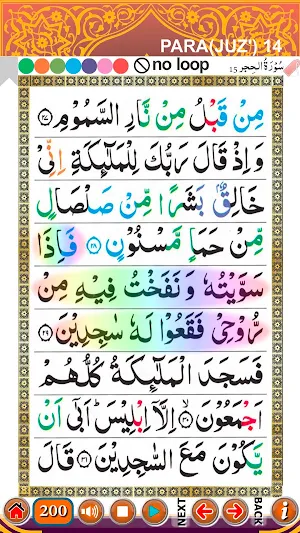 PARA(JUZ') 14
no loop
سُوْرَةُ الْحِجْر ١٥
مِنْ قَبْلُ مِنْ نَّارِ السَّمُوْمِ ﴿۲۷﴾
وَاِذْ قَالَ رَبُّكَ لِلْمَلٰٓئِكَةِ اِنِّیْ
خَالِقٌۢ بَشَرًا مِّنْ صَلْصَالٍ
مِّنْ حَمَاٍ مَّسْنُوْنٍ ﴿۲۸﴾ فَاِذَا
سَوَّیْتُهٗ وَنَفَخْتُ فِیْهِ مِنْ
رُّوْحِیْ فَقَعُوْا لَهٗ سٰجِدِیْنَ ﴿۲۹﴾
فَسَجَدَ الْمَلٰٓئِكَةُ كُلُّهُمْ
اَجْمَعُوْنَ ﴿۳۰﴾ اِلَّاۤ اِبْلِیْسَ اَبٰۤی اَنْ
یَّكُوْنَ مَعَ السّٰجِدِیْنَ ﴿۳۱﴾ قَالَ
200
NEXT
BACK